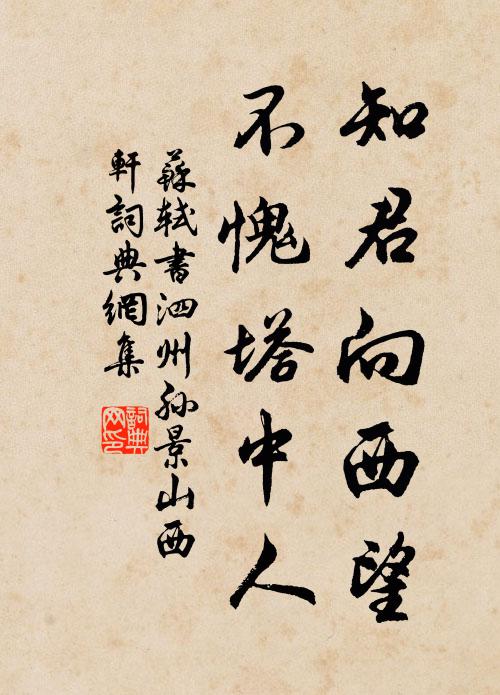 知君向西望
不愧塔中人
蘇軾書泗州孫景山西
軒詞典網集
詞典
网印